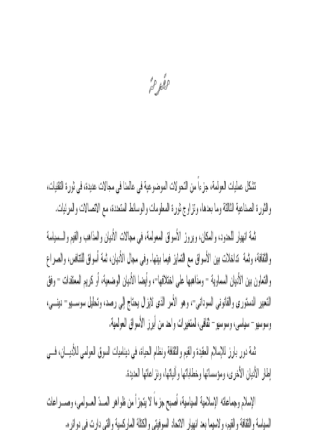 مقدمة
تشكل عمليات العولمة، جزءاً من التحولات الموضوعية في عالمنا في مجالات عديدة، في ثورة التقنيات،
والثورة الصناعية الثالثة وما بعدها، وتزاوج ثورة المعلومات والوسائط المتعددة، مع الاتصالات والمرئيات.
ثمة انهيار للحدود، والمكان، وبروز الأسواق المعولمة، في مجالات الأديان والمذاهب والقيم والسياسة
والثقافة، وثمة تداخلات بين الأسواق مع التمايز فيما بينها. وفي مجال الأديان، ثمة أسواق للتنافس، والصراع
والتعاون بين الأديان السماوية - ومذاهبها على اختلافها-، وأيضا الأديان الوضعية، أو كريم المعتقدات - وفق
التعبير الدستوري والقانوني السوداني-، وهو الأمر الذى لايزال يحتاج إلى رصد، وتحليل سوسيو- دينى،
وسوسيو- سياسى، وسوسيو- ثقافى، لمتغيرات واحد من أبرز الأسواق العولمية.
ثمة دور بارز للإسلام العقيدة والقيم والثقافة ونظام الحياة، في ديناميات السوق العولمي للأديان، في
إطار الأديان الأخرى، ومؤسساتها وخطاباتها وآلياتها، ونزاعاتها العديدة.
الإسلام وجماعاته الإسلامية السياسية، أصبح جزءاً لا يتجزأ من ظواهر المد العولمى، وصراعات
السياسة والثقافة والقيم، ولاسيما بعد انهيار الاتحاد السوفيتي والكتلة الماركسية والتى دارت في دوائره،